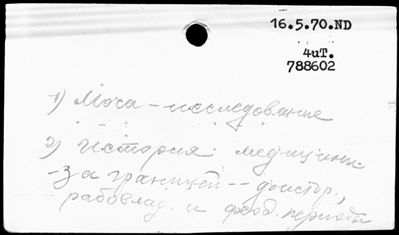 16.5.70.ND
4uT.
788602
1) Моча - исследование
2) История медицины.
- за границей -- доистор.,
рабовлад. и феод. периоды